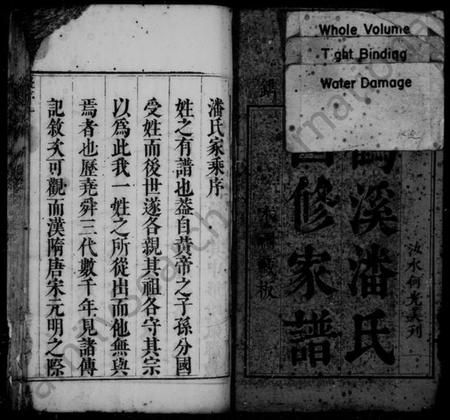 Whole Volume
Tight Binding
Water Damage
溪潘氏
修家譜
藏板
汝水何光美刊
潘氏家乘序
姓之有譜也葢自黃帝之子孫分國
受姓而後世遂各親其祖各守其宗
以為此我一姓之所從出而他無與
焉者也歷堯舜三代數千年見諸傳
記敘次可觀而漢隋唐宋元明之際